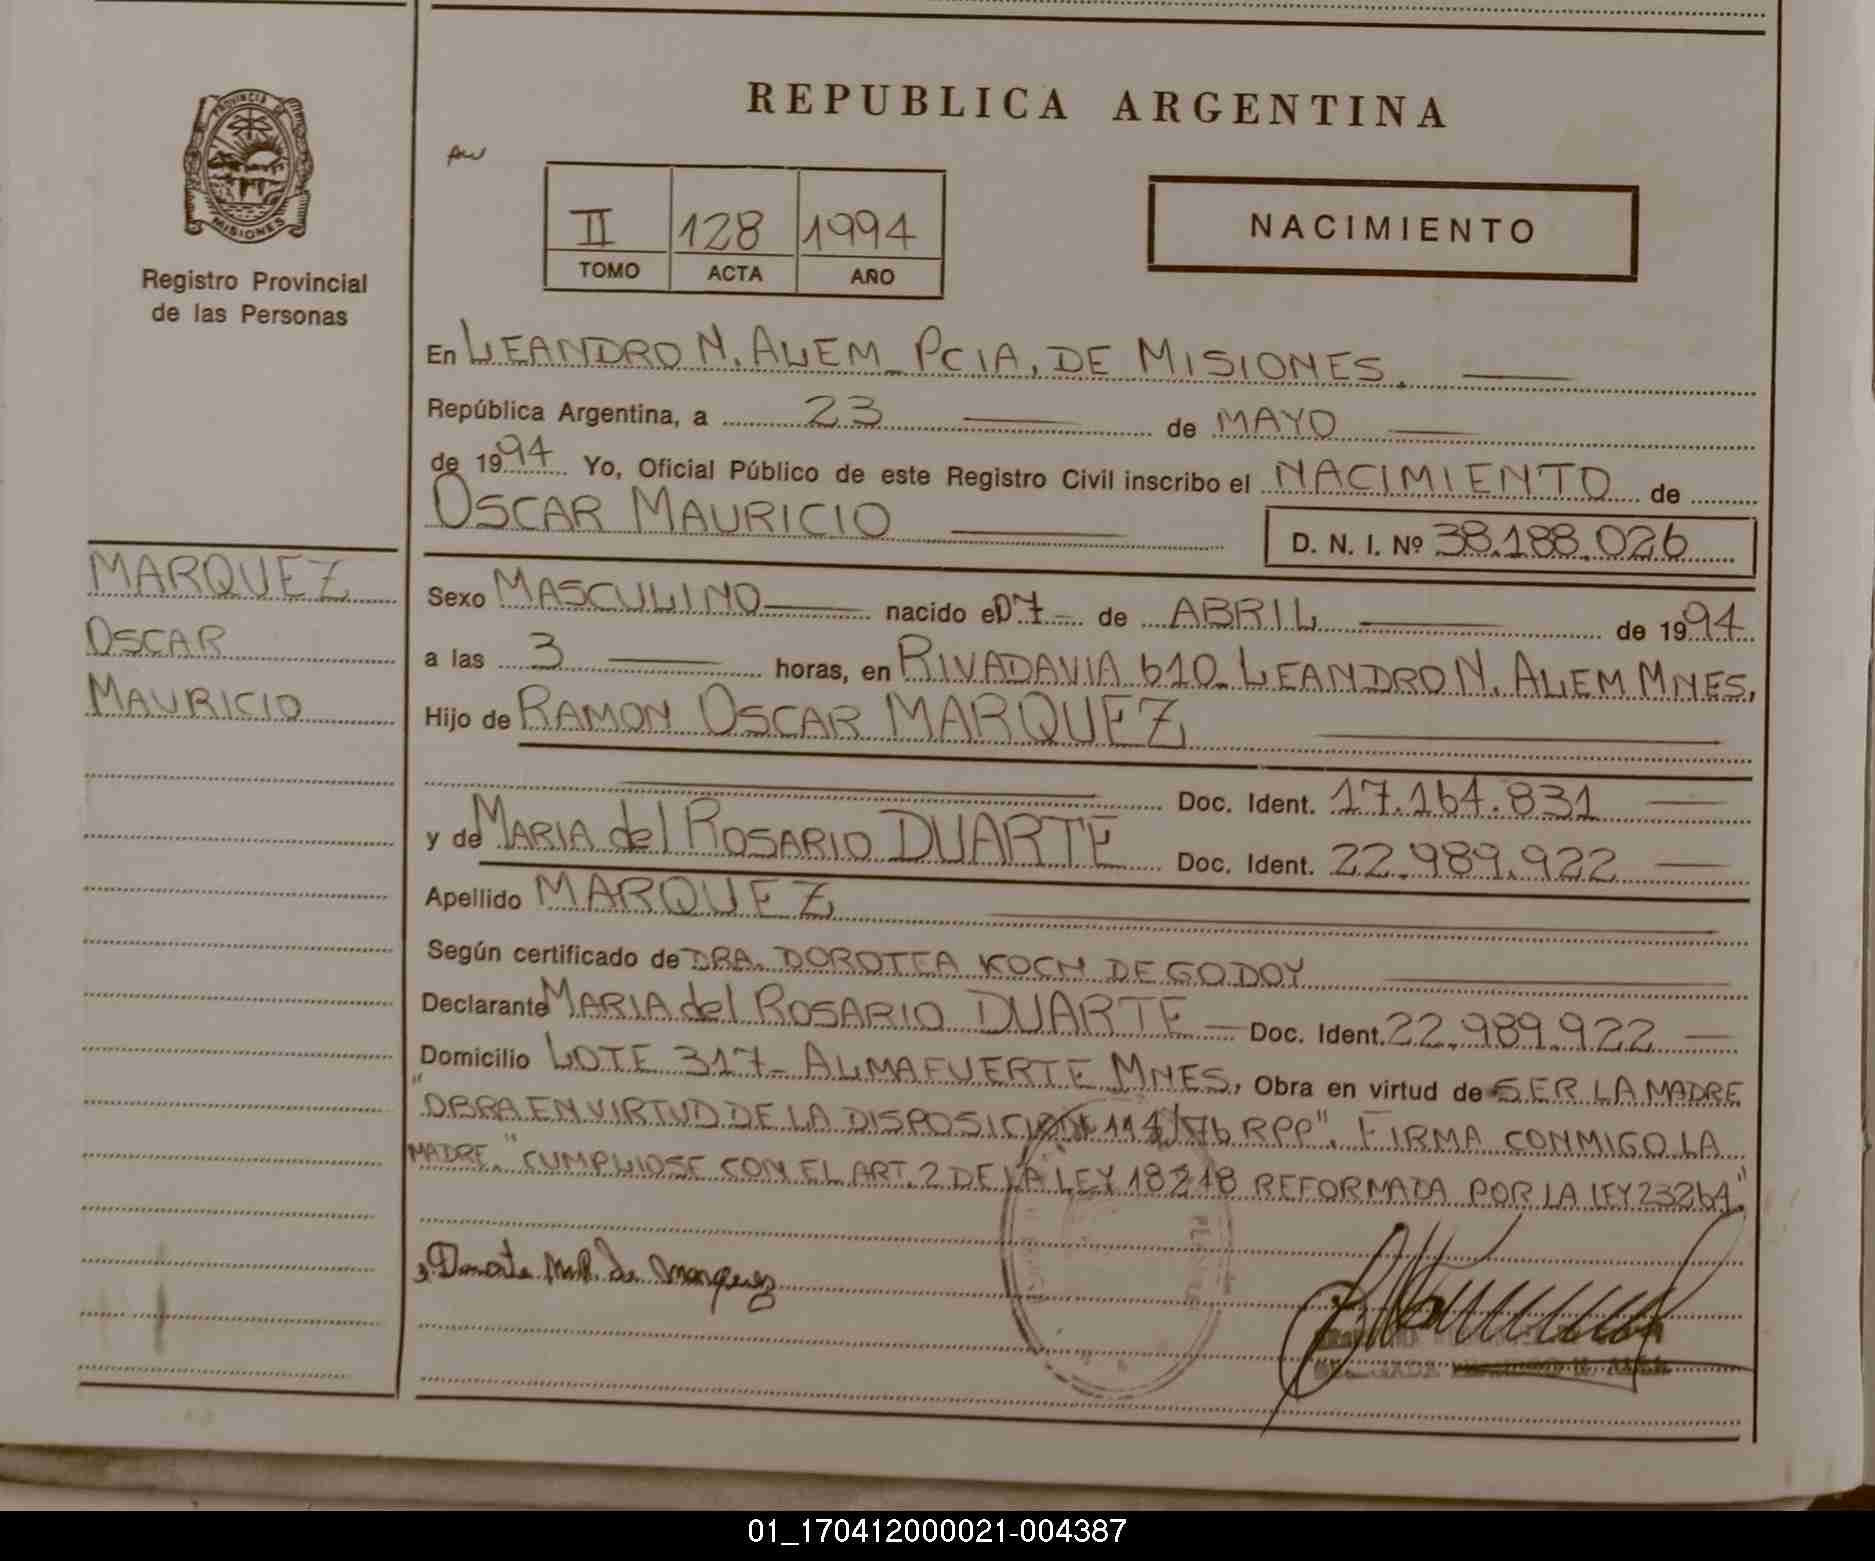 REPUBLICA ARGENTINA
PROVINCIA DE
MISIONES
Registro Provincial
de las Personas
II 128 1994
TOMO ACTA AÑO
NACIMIENTO
En LEANDRO N. ALEM PCIA, DE MISIONES.
República Argentina, a 23 de MAYO
de 1994 Yo, Oficial Público de este Registro Civil inscribo el NACIMIENTO de
OSCAR MAURICIO
D. N. I. Nº 38.188.026
MARQUEZ
OSCAR
MAURICIO
Sexo MASCULINO nacido el 07 de ABRIL de 1994
a las 3 horas, en RIVADAVIA 610 LEANDRO N. ALEM MNES.
Hijo de RAMON OSCAR MARQUEZ
Doc. Ident. 17.164.831
y de MARIA del ROSARIO DUARTE Doc. Ident. 22.989.922
Apellido MARQUEZ
Según certificado de DRA. DOROTEA KOCH DE GODOY
Declarante MARIA del ROSARIO DUARTE Doc. Ident. 22.989.922
Domicilio LOTE 317 - ALMAFUERTE MNES. Obra en virtud de SER LA MADRE
"OBRA EN VIRTUD DE LA DISPOSICION 114/76 RPP". FIRMA CONMIGO LA
MADRE. "CUMPLIOSE CON EL ART. 2 DE LA LEY 18248 REFORMADA POR LA LEY 23264"
Duarte M.R. de Marquez
01_170412000021-004387